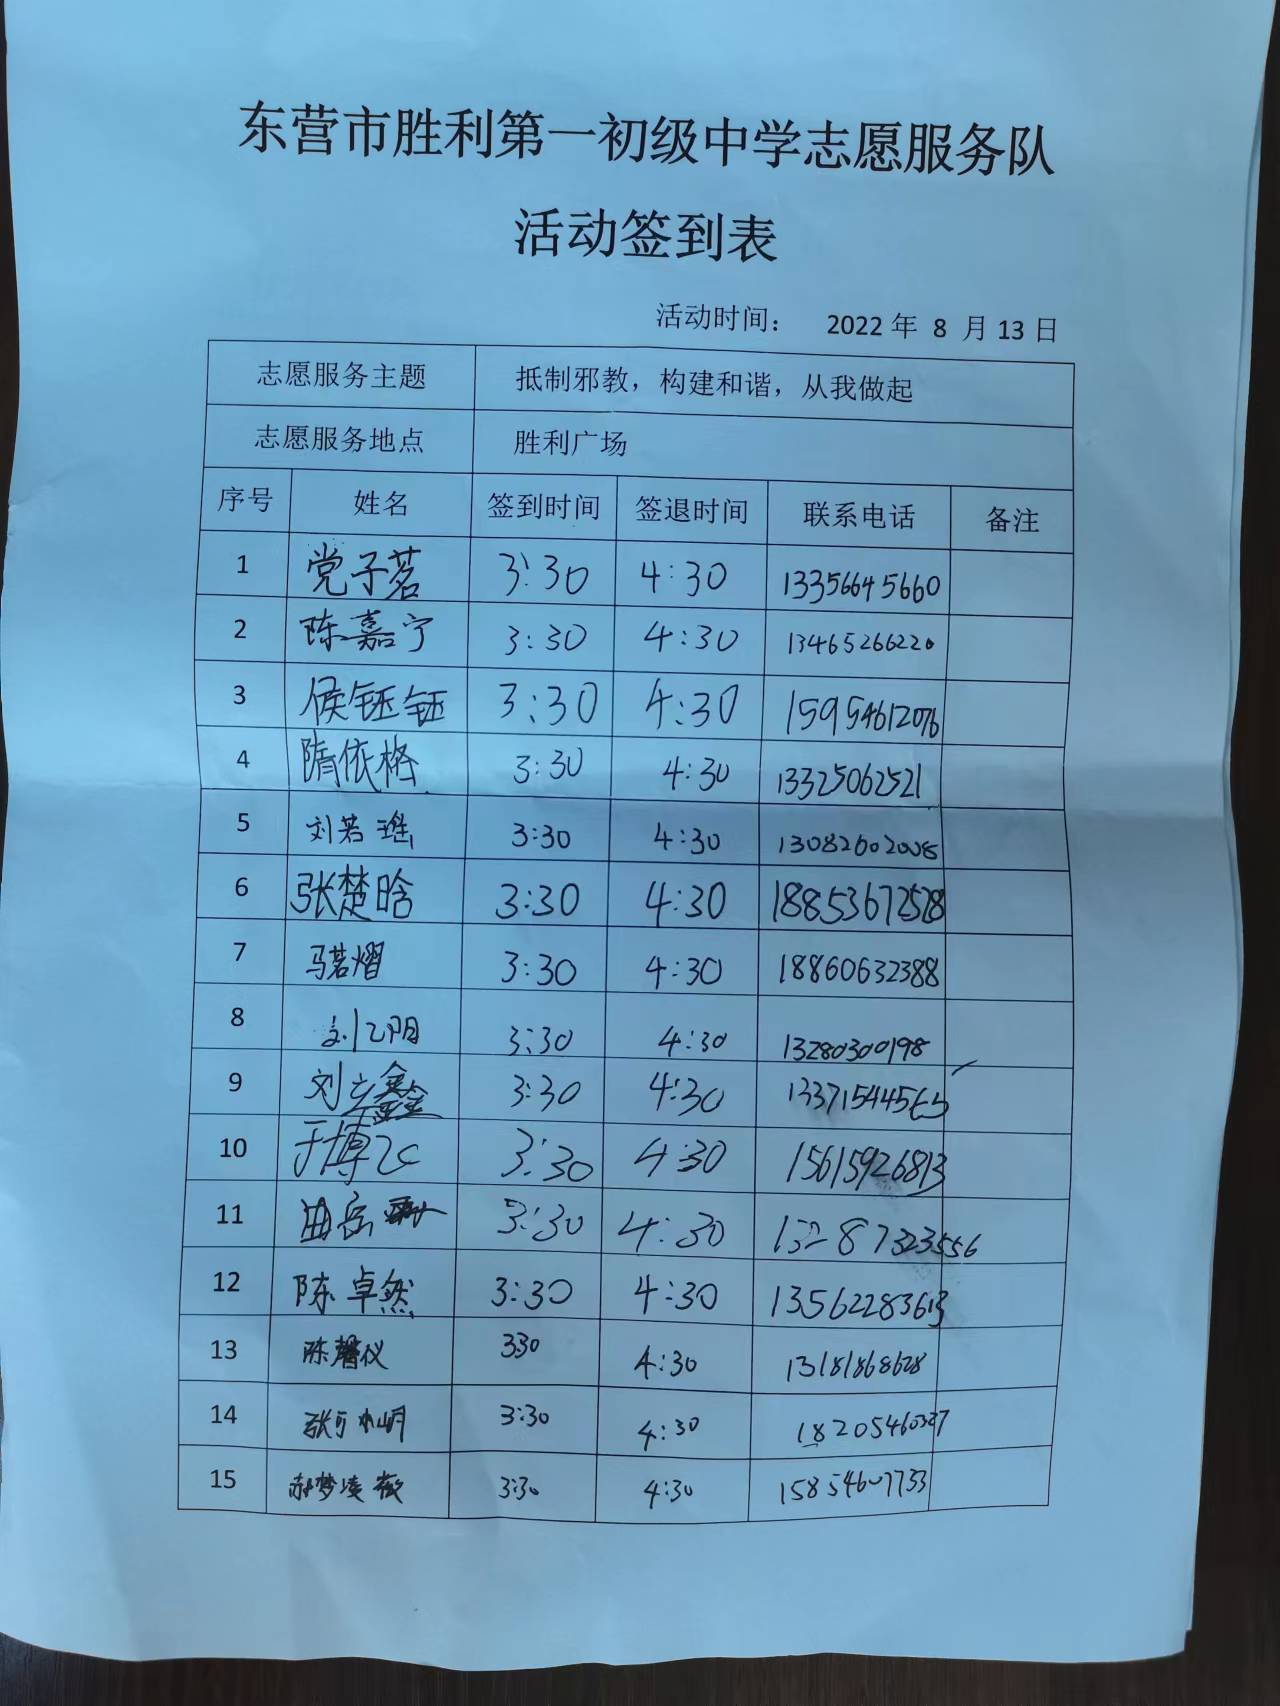 东营市胜利第一初级中学志愿服务队
活动签到表
活动时间： 2022 年 8 月 13 日
志愿服务主题 抵制邪教，构建和谐，从我做起
志愿服务地点 胜利广场
序号 姓名 签到时间 签退时间 联系电话 备注
1 党子茗 3:30 4:30 13356645660
2 陈嘉宁 3:30 4:30 13465266220
3 侯钰钰 3:30 4:30 15954612076
4 隋依格 3:30 4:30 13325062521
5 刘若瑶 3:30 4:30 13082602008
6 张楚晗 3:30 4:30 18853672528
7 马若熠 3:30 4:30 18860632388
8 刘乙阳 3:30 4:30 13280300198
9 刘立鑫 3:30 4:30
10 于博 3:30 4:30 15615926813
11 曲 3:30 4:30 13287323556
12 陈卓然 3:30 4:30 13562283613
13 陈馨仪 330 4:30 13181868628
14 张 3:30 4:30 18205460327
15 郝梦凌薇 3:30 4:30 15854607733